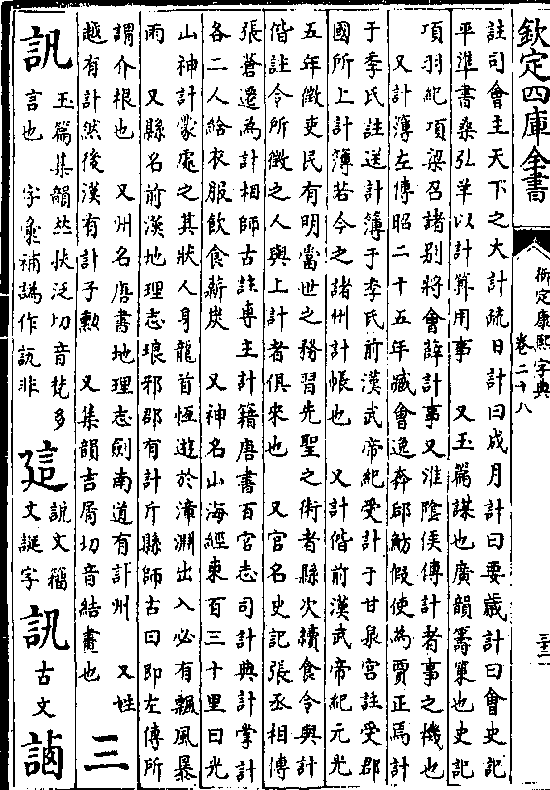 欽定四庫全書
御定康熙字典
卷二十八
註司會主天下之大計疏日計曰成月計曰要歲計曰會史記
平準書桑弘羊以計算用事 又玉篇謀也廣韻籌策也史記
項羽紀項梁召諸别將會薛計事又淮陰侯傳計者事之機也
又計簿左傳昭二十五年臧會逸奔郈魴假使為賈正焉計
于季氏註送計簿于季氏前漢武帝紀受計于甘泉宫註受郡
國所上計簿若今之諸州計帳也 又計偕前漢武帝紀元光
五年徵吏民有明當世之務習先聖之術者縣次續食令與計
偕註令所徵之人與上計者俱來也 又官名史記張丞相傳
張蒼遷為計相師古註專主計籍唐書百官志司計典計掌計
各二人給衣服飲食薪炭 又神名山海經東百三十里曰光
山神計蒙處之其狀人身龍首恆遊於漳淵出入必有飄風暴
雨 又縣名前漢地理志琅邪郡有計斤縣師古曰即左傳所
謂介根也 又州名唐書地理志劍南道有計州 又姓
越有計然後漢有計子勲 又集韻吉屑切音結畫也
三
訊 玉篇集韻𠀤扶泛切音梵多
言也 字彙補譌作訊非
說文籀
文誕字
訊 古文